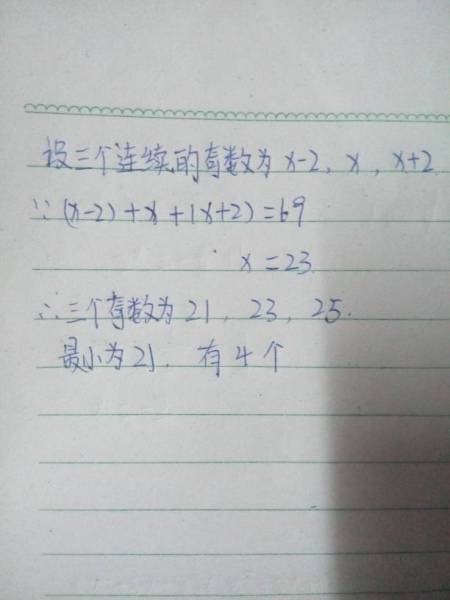 设三个连续的奇数为x-2, x, x+2
∵(x-2)+x+(x+2)=69
x=23
∴三个奇数为21, 23, 25.
最小为21. 有4个